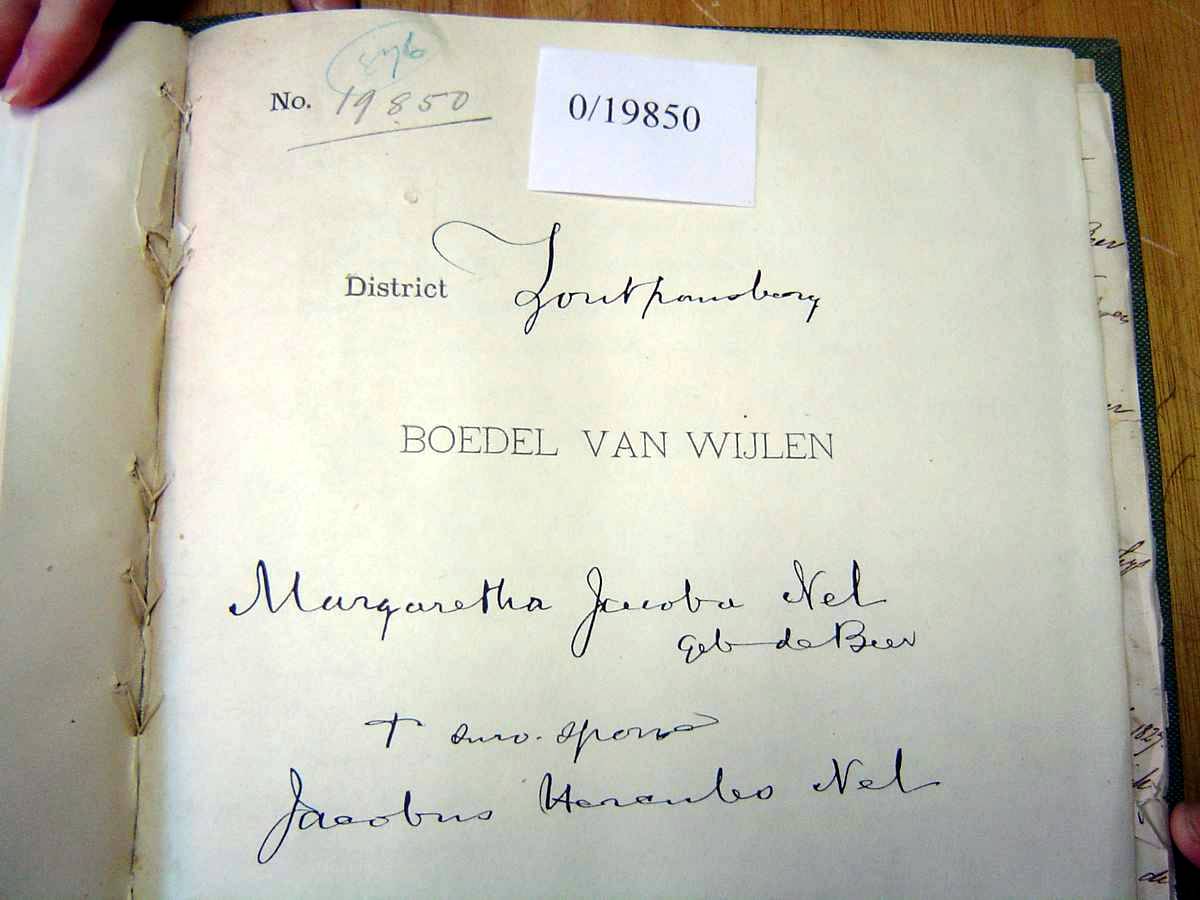 876
No. 19850
0/19850
District Zoutpansberg
BOEDEL VAN WIJLEN
Margaretha Jacoba Nel
geb de Beer
+ surv. spouse
Jacobus Hercules Nel
1829
de